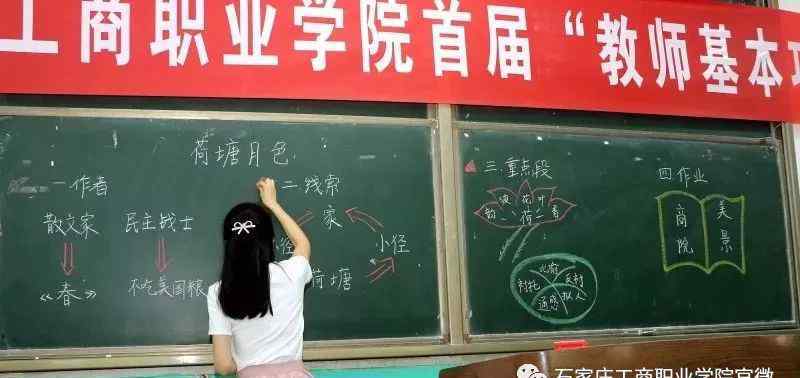 工商职业学院首届“教师基本功
荷塘月色
一作者
散文家 民主战士
《春》 不吃美国粮
二线索
家
小径
荷塘
三.重点段
四作业
商院
美景
比喻
反衬
衬托
通感
拟人
石家庄工商职业学院官微